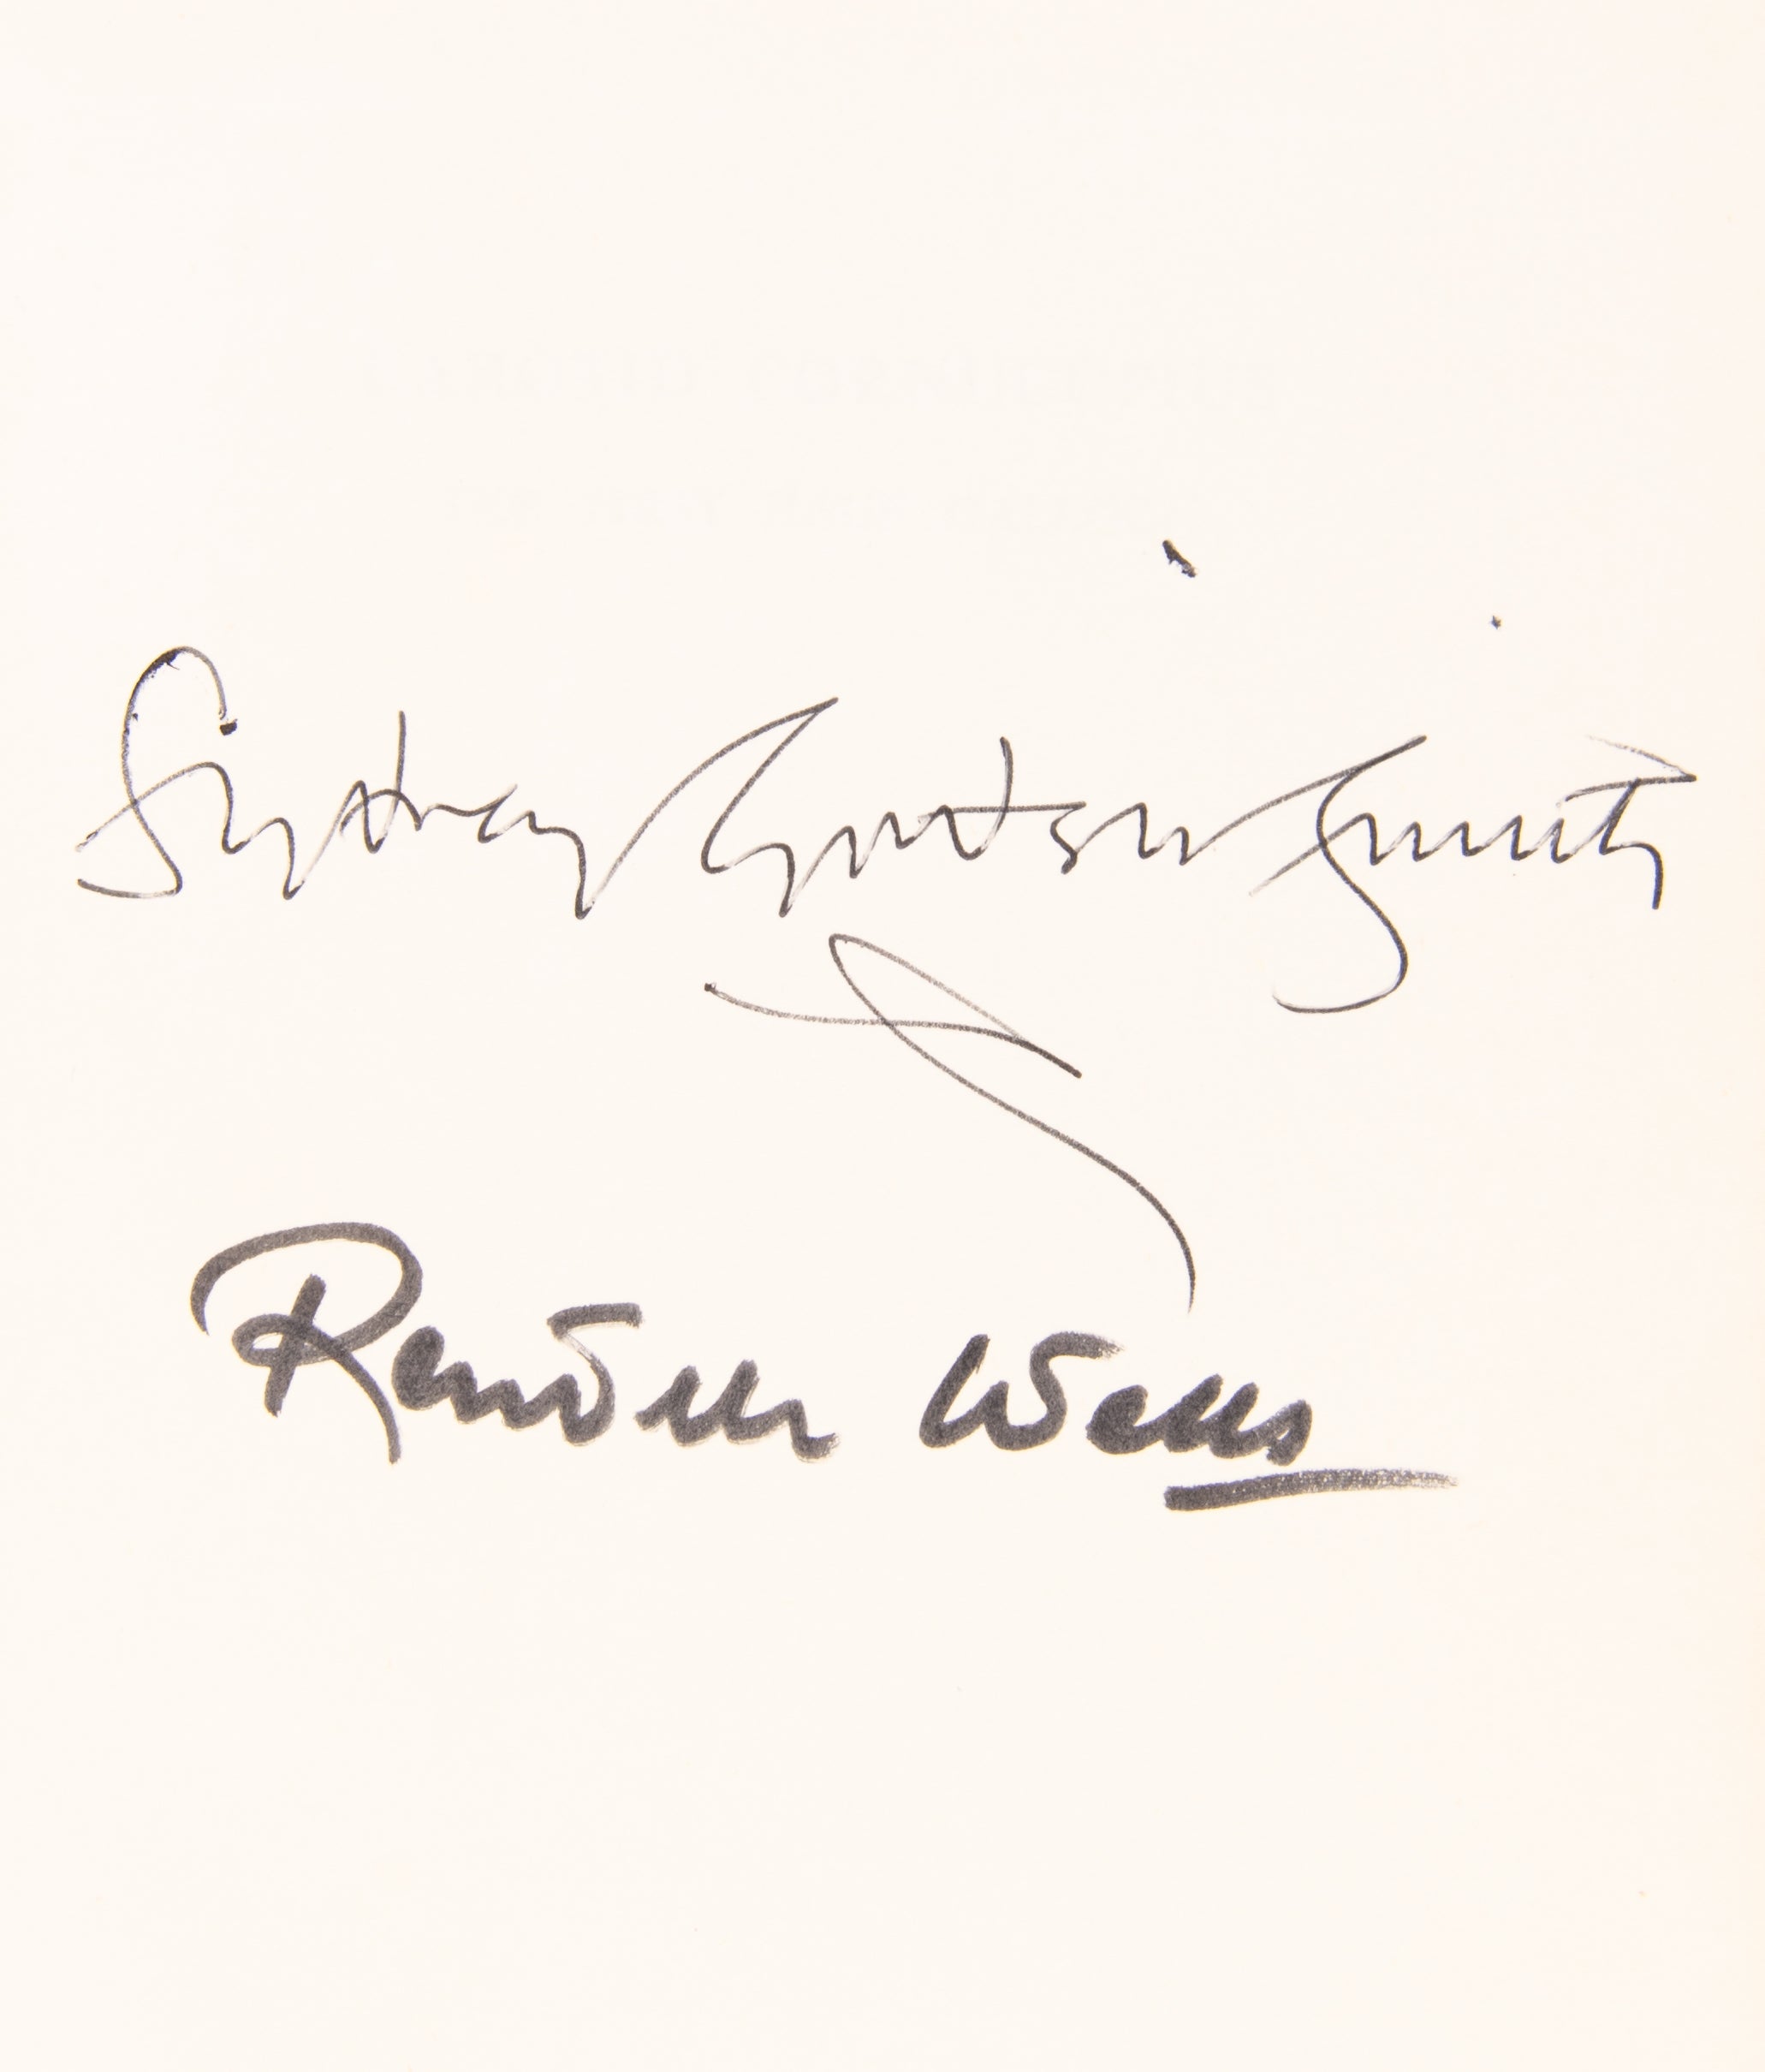 Sydney Goodsir Smith
Rendell Wells